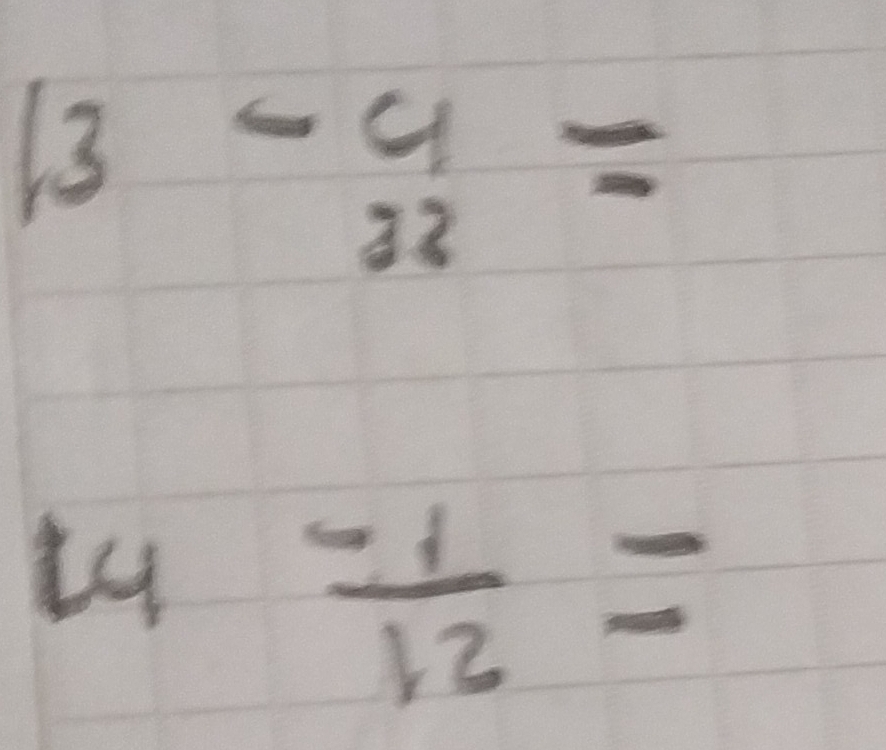 13 - 4 =
22
14 - 1 =
12